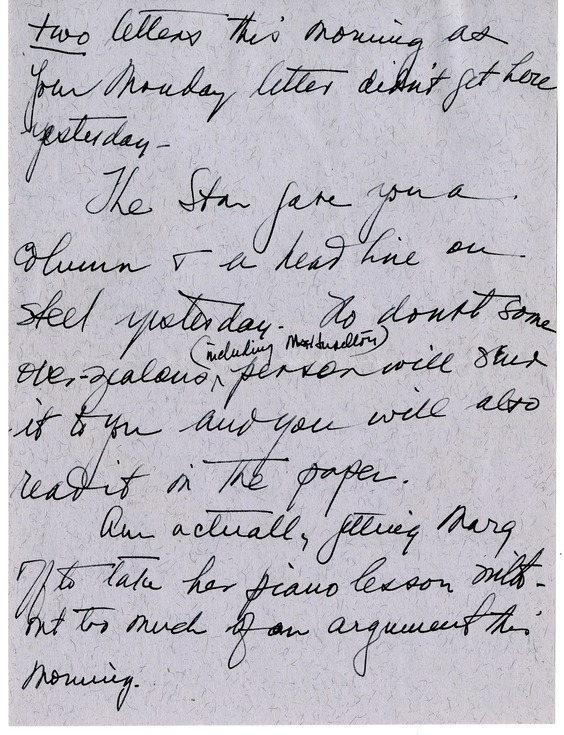 two letters this morning as
your Monday letter didn't get here
yesterday-
The Star gave you a
column & a head line on
steel yesterday. No doubt some
(including
over-zealous ^ person will send
it to you and you will also
read it in the paper.
Am actually getting Marg
off to take her piano lesson with-
out too much of an argument this
morning.